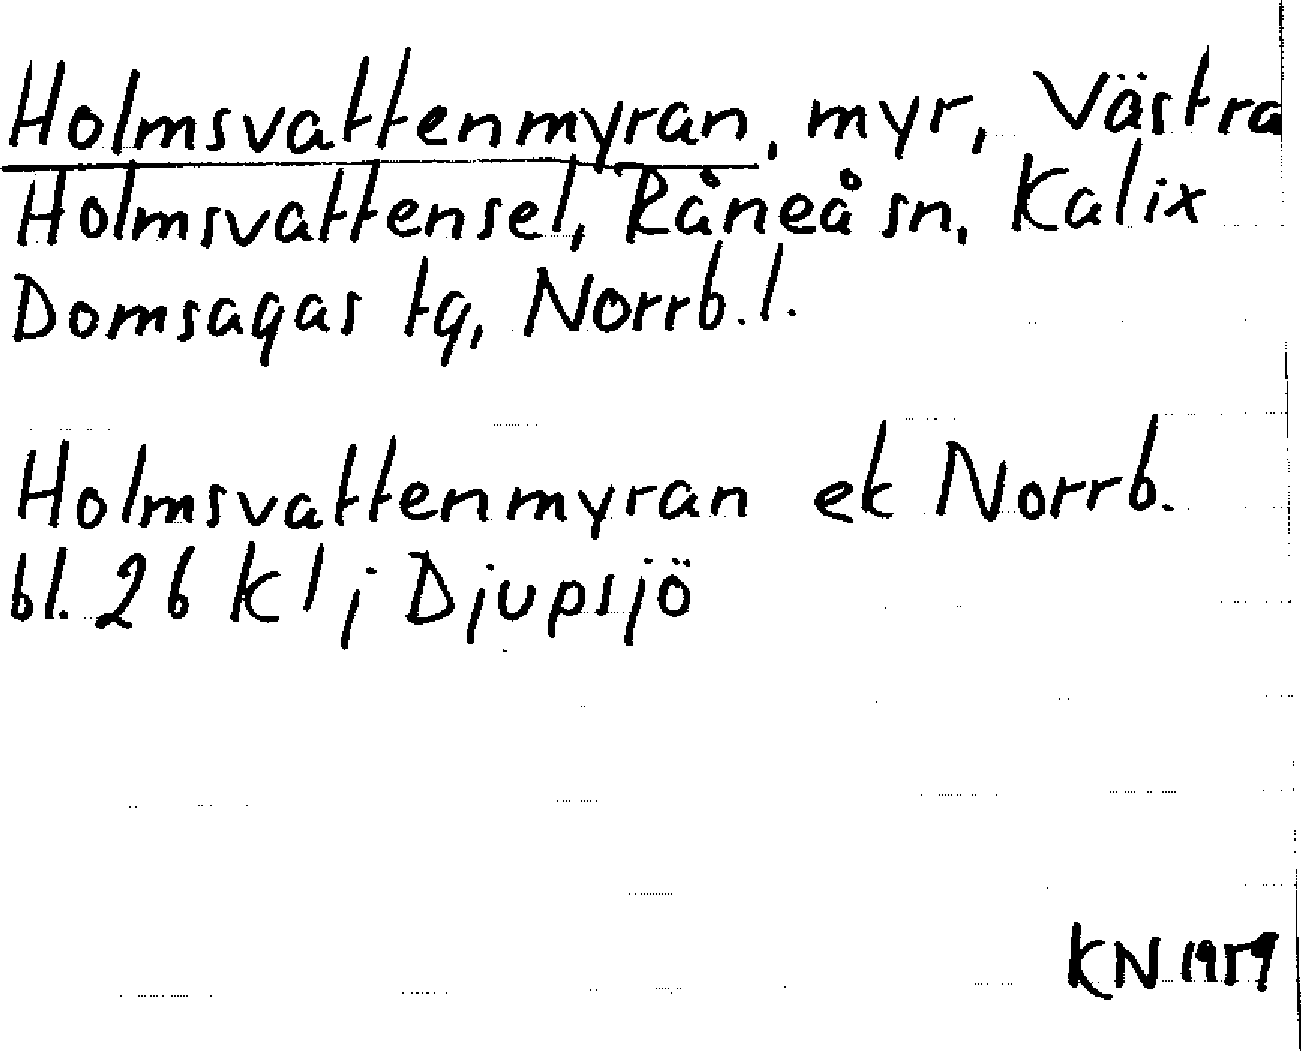 Holmsvattenmyran, myr, Västra
Holmsvattensel, Råneå sn, Kalix
Domsagas tg, Norrb. l.
Holmsvattenmyran ek Norrb.
bl. 26 Kl; Djupsjö
KN 1959